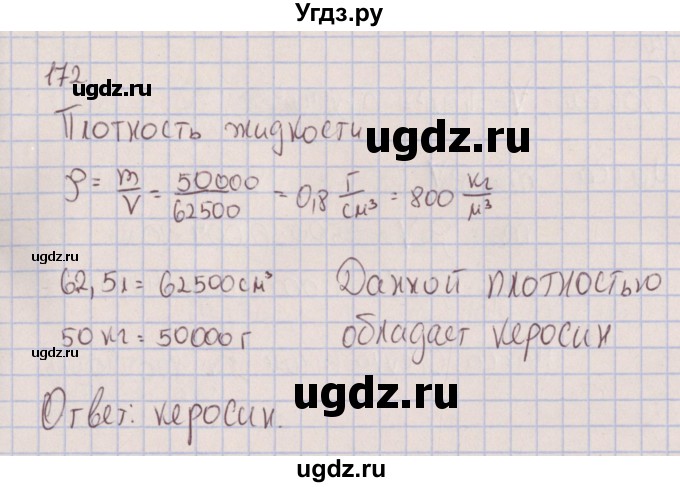 Угдз.ру
172
ugdz.ru
Плотность жидкости
ugdz.ru
ρ = m/V = 50000/62500 = 0,8 г/см³ = 800 кг/м³
ugdz.ru
62,5л = 62500см³ Данной плотностью
50 кг = 50000 г обладает керосин
ugdz.ru
ugdz.ru
Ответ: керосин.
ugdz.ru